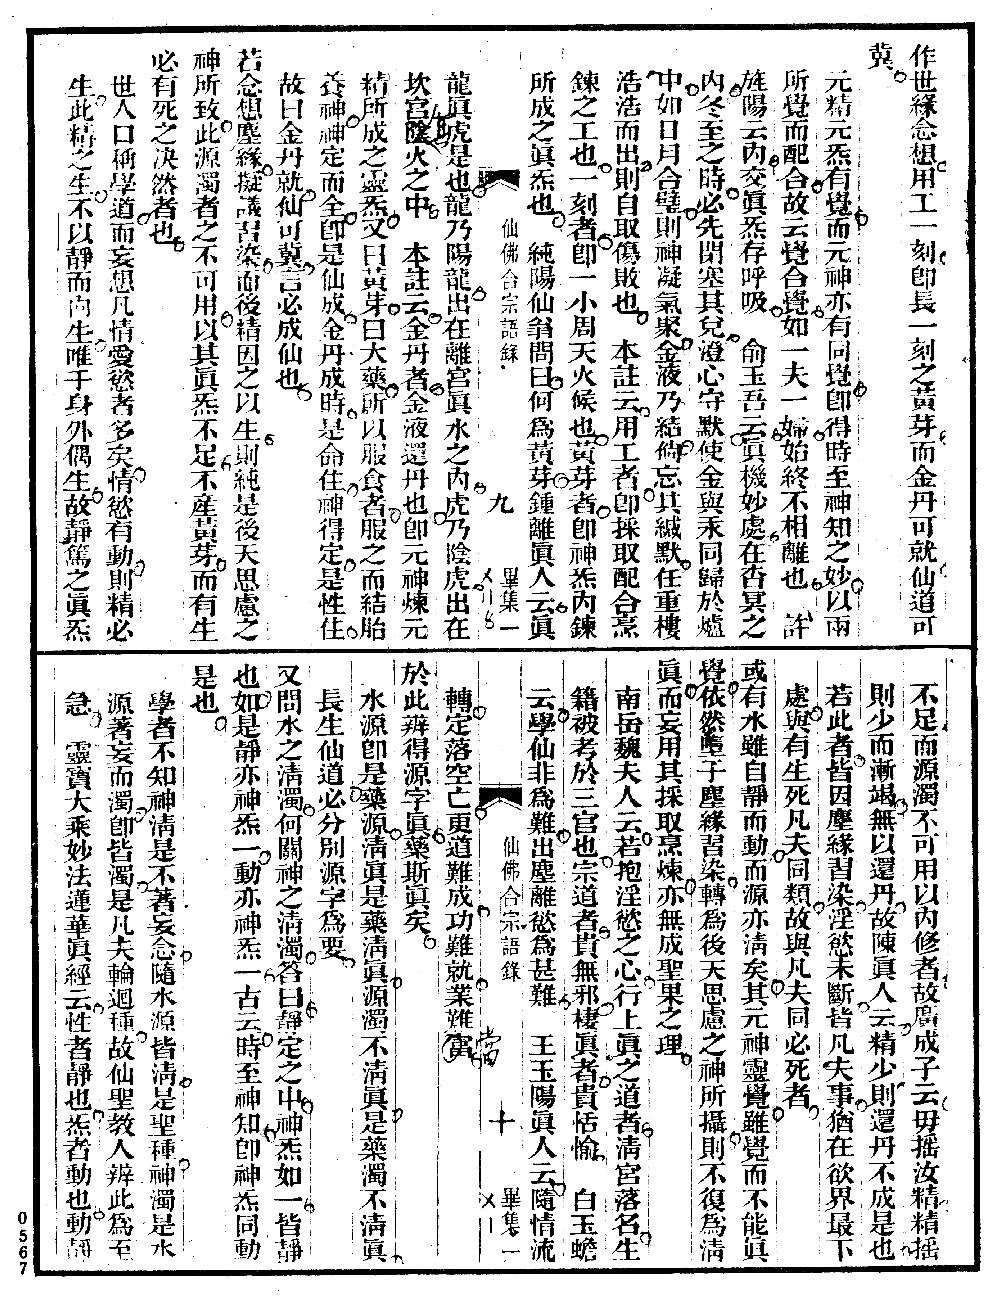 作世緣念想用工一刻卽長一刻之黃芽而金丹可就仙道可
冀
元精元炁有覺而元神亦有同覺卽得時至神知之妙以兩
所覺而配合故云覺合覺如一夫一婦始終不相離也　許
旌陽云內交眞炁存呼吸　俞玉吾云眞機妙處在杳冥之
內冬至之時必先閉塞其兌澄心守默使金與汞同歸於爐
中如日月合璧則神凝氣聚金液乃結倘忘其緘默任重樓
浩浩而出則自取傷敗也　本註云用工者卽採取配合烹
鍊之工也一刻者卽一小周天火候也黃芽者卽神炁內鍊
所成之眞炁也　純陽仙翁問曰何爲黃芽鍾離眞人云眞
仙佛合宗語錄　九　畢集一
龍眞虎是也龍乃陽龍出在離宮眞水之內虎乃陰虎出在
坎宮陰火之中　本註云金丹者金液還丹也卽元神煉元
精所成之靈炁又曰黃芽曰大藥所以服食者服之而結胎
養神神定而全卽是仙成金丹成時是命住神得定是性住
故曰金丹就仙可冀言必成仙也
若念想塵緣擬議習染而後精因之以生則純是後天思慮之
神所致此源濁者之不可用以其眞炁不足不產黃芽而有生
必有死之决然者也
世人口稱學道而妄想凡情愛慾者多矣情慾有動則精必
生此精之生不以靜而向生唯于身外偶生故靜篤之眞炁
不足而源濁不可用以內修者故廣成子云毋搖汝精精搖
則少而漸竭無以還丹故陳眞人云精少則還丹不成是也
若此者皆因塵緣習染淫慾未斷皆凡夫事猶在欲界最下
處與有生死凡夫同類故與凡夫同必死者
或有水雖自靜而動而源亦淸矣其元神靈覺雖覺而不能眞
覺依然墮于塵緣習染轉爲後天思慮之神所攝則不復爲淸
眞而妄用其採取烹煉亦無成聖果之理
南岳魏夫人云若抱淫慾之心行上眞之道者淸宮落名生
籍被考於三官也宗道者貴無邪棲眞者貴恬愉　白玉蟾
云學仙非爲難出塵離慾爲甚難　王玉陽眞人云隨情流
仙佛合宗語錄　十　畢集一
轉定落空亡更道難成功難就業難當
於此辨得源字眞藥斯眞矣
水源卽是藥源淸眞是藥淸眞源濁不淸眞是藥濁不淸眞
長生仙道必分別源字爲要
又問水之淸濁何關神之淸濁答曰靜定之中神炁如一皆靜
也如是靜亦神炁一動亦神炁一古云時至神知卽神炁同動
是也
學者不知神淸是不著妄念隨水源皆淸是聖種神濁是水
源著妄而濁卽皆濁是凡夫輪迴種故仙聖敎人辨此爲至
急　靈寶大乘妙法蓮華眞經云性者靜也炁者動也動靜
0567